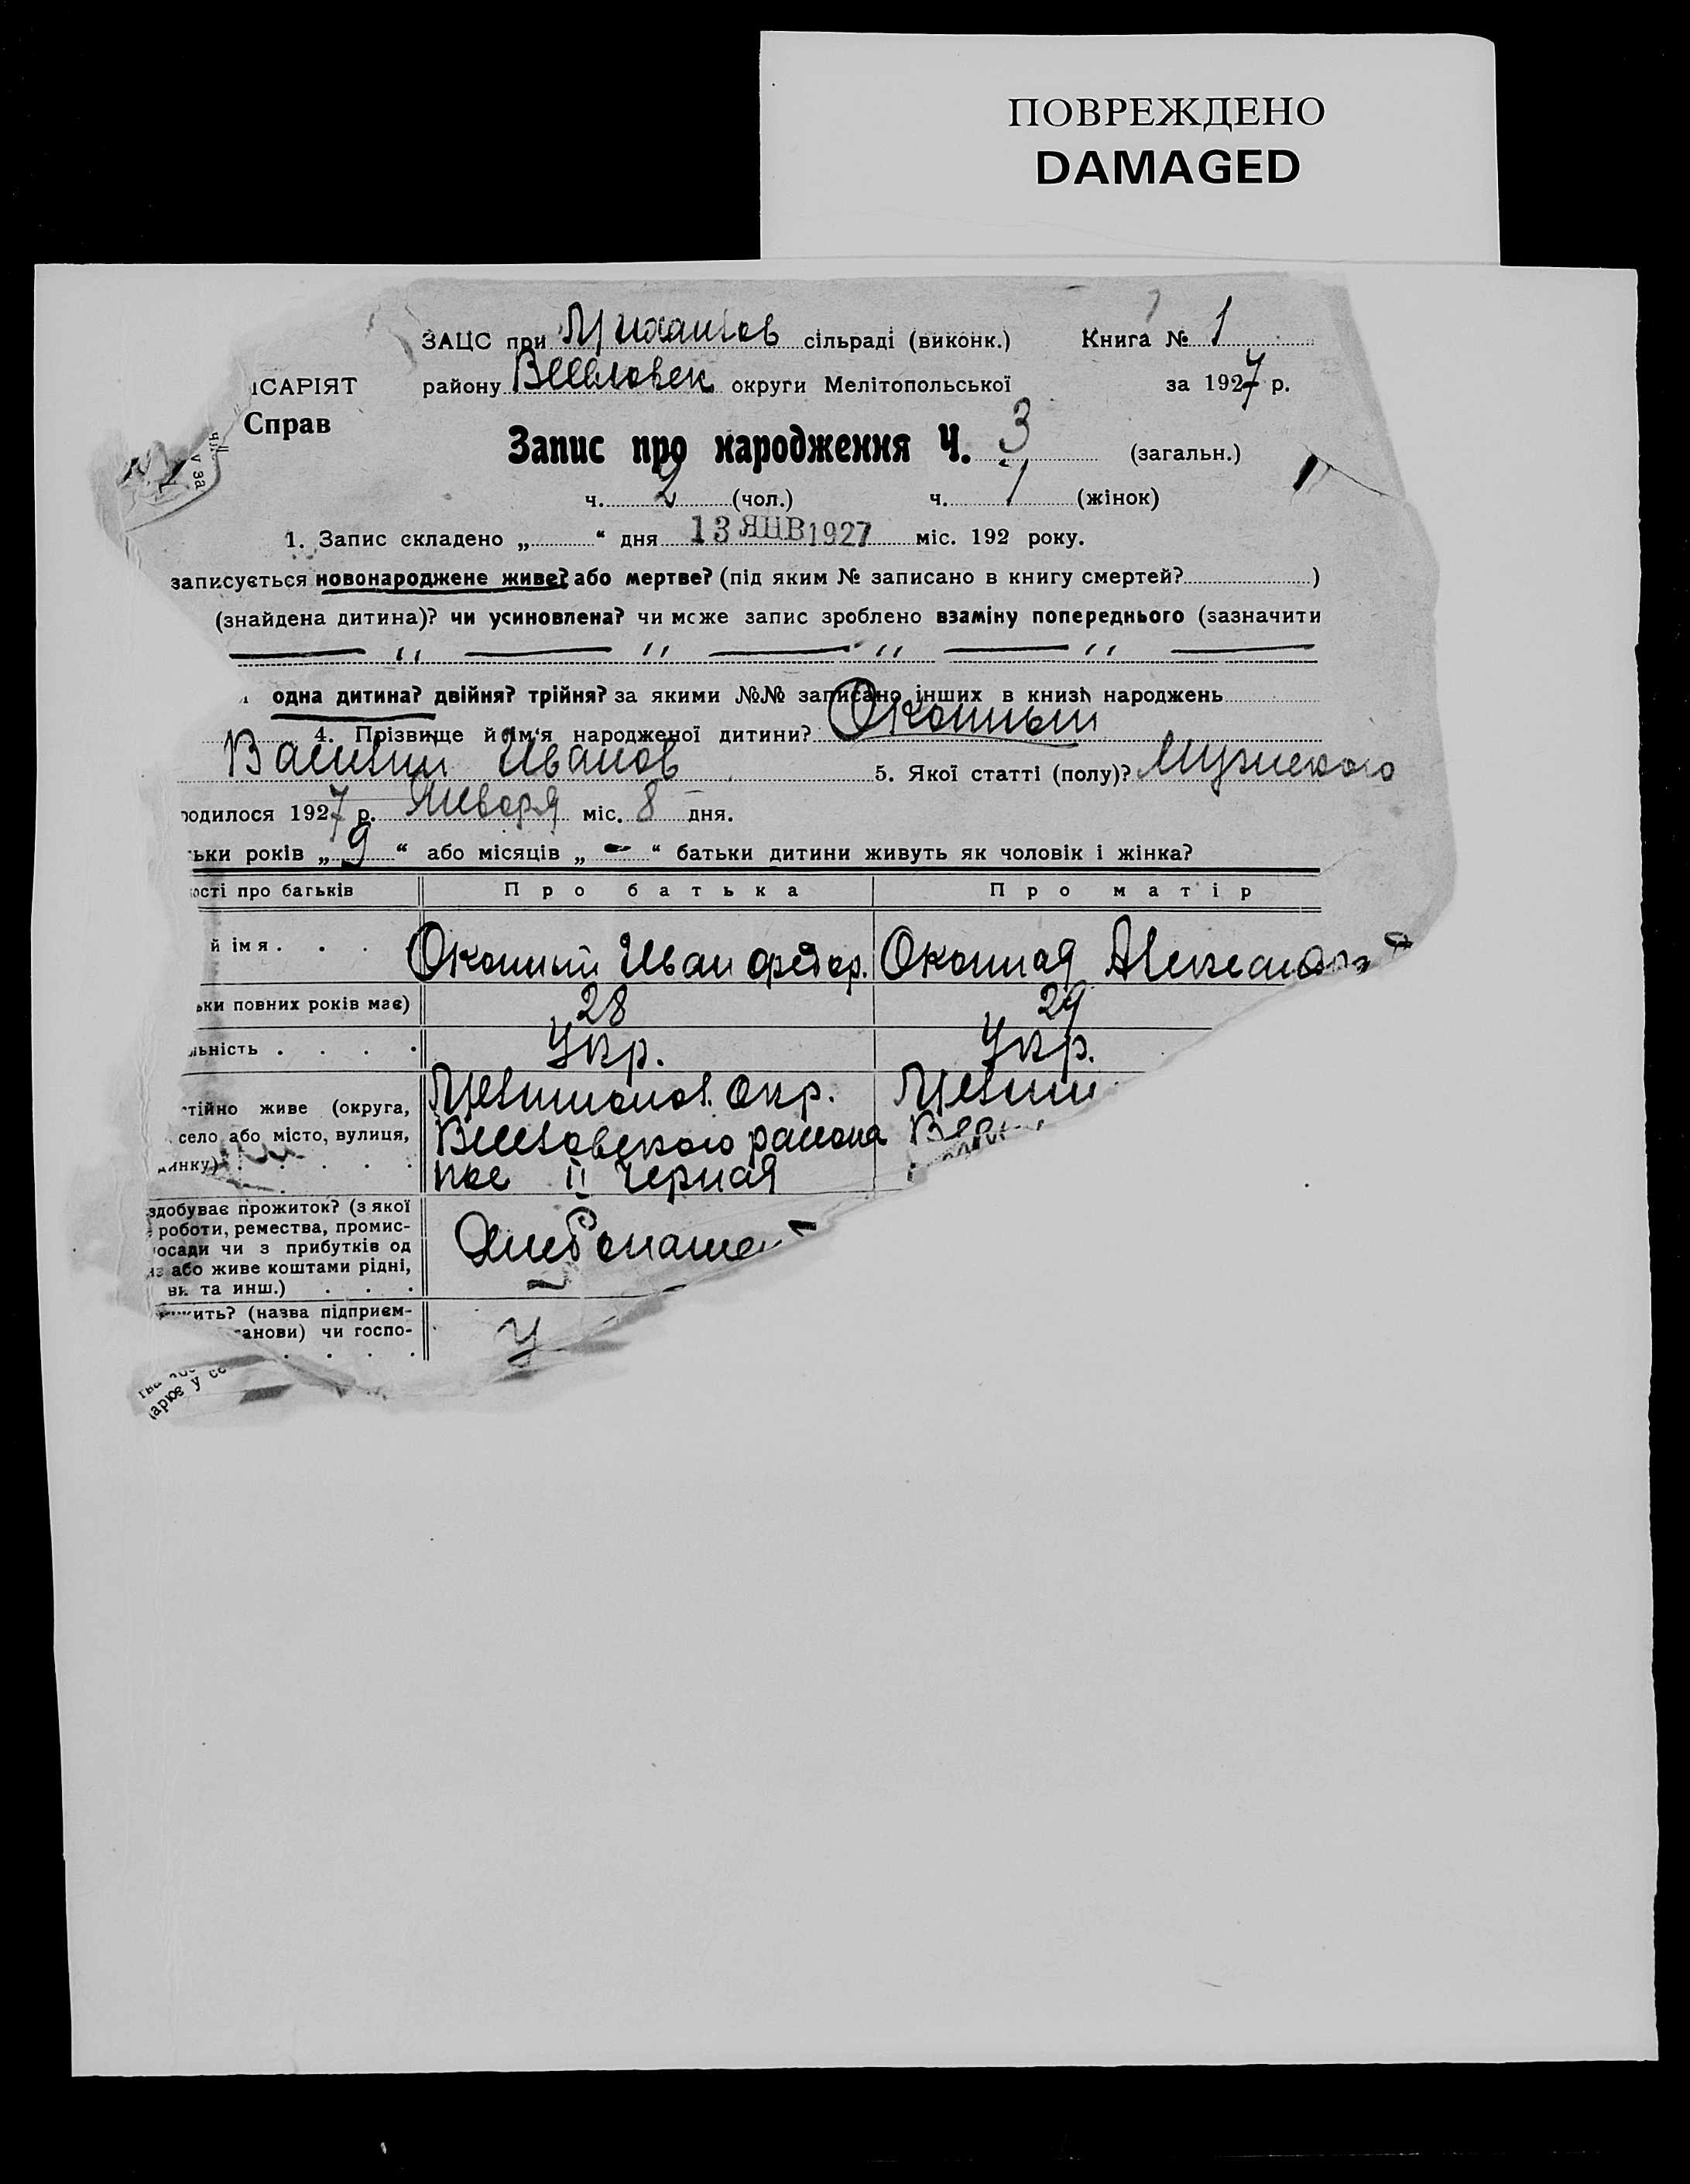 ПОВРЕЖДЕНО
DAMAGED
ЗАЦС при Михайлов сільраді (виконк.) Книга № 1
ІСАРІЯТ району Веселовск округи Мелітопольської за 1927 р.
Справ
Запис про народження Ч. 3 (загальн.)
ч. 2 (чол.) ч. 1 (жінок)
1. Запис складено „ “ дня 13 ЯНВ 1927 міс. 192 року.
записується новонароджене живе? або мертве? (під яким № записано в книгу смертей? )
(знайдена дитина)? чи усиновлена? чи може запис зроблено взаміну попереднього (зазначити
— ״ — ״ — ״ — ״ —
одна дитина? двійня? трійня? за якими №№ записано інших в книзі народжень
4. Прізвище й ім'я народженої дитини? Оконный
Василий Иванов 5. Якої статті (полу)? Мужского
родилося 1927 р. Января міс. 8 дня.
ьки років „ 9 “ або місяців „ - “ батьки дитини живуть як чоловік і жінка?
ості про батьків Про батька Про матір
й імя . . . Оконный Иван Федор. Оконная Александра
ьки повних років має) 28 29
льність . . . . Укр. Укр.
тійно живе (округа, Мелитопол. Окр. Мелит
село або місто, вулиця, Веселовского района Ве
инку) . . . . . пос II Черная
здобуває прожиток? (з якої
роботи, ремества, промис-
осади чи з прибутків од Хлебопаше
або живе коштами рідні,
ви та инш.) . . .
ить? (назва підприєм-
анови) чи госпо- У
. . . .
арює у се